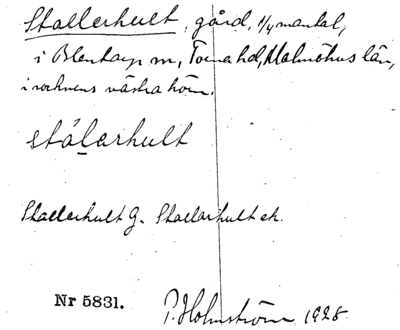 Stallerhult, gård, 1/4 mantal,
i Blentarp sn, Torna hd, Malmöhus län,
i socknens västra hörn.
stạ́larhult
Stallerhult G. Stallarhult ek.
Nr 5831. P. Holmström 1928.